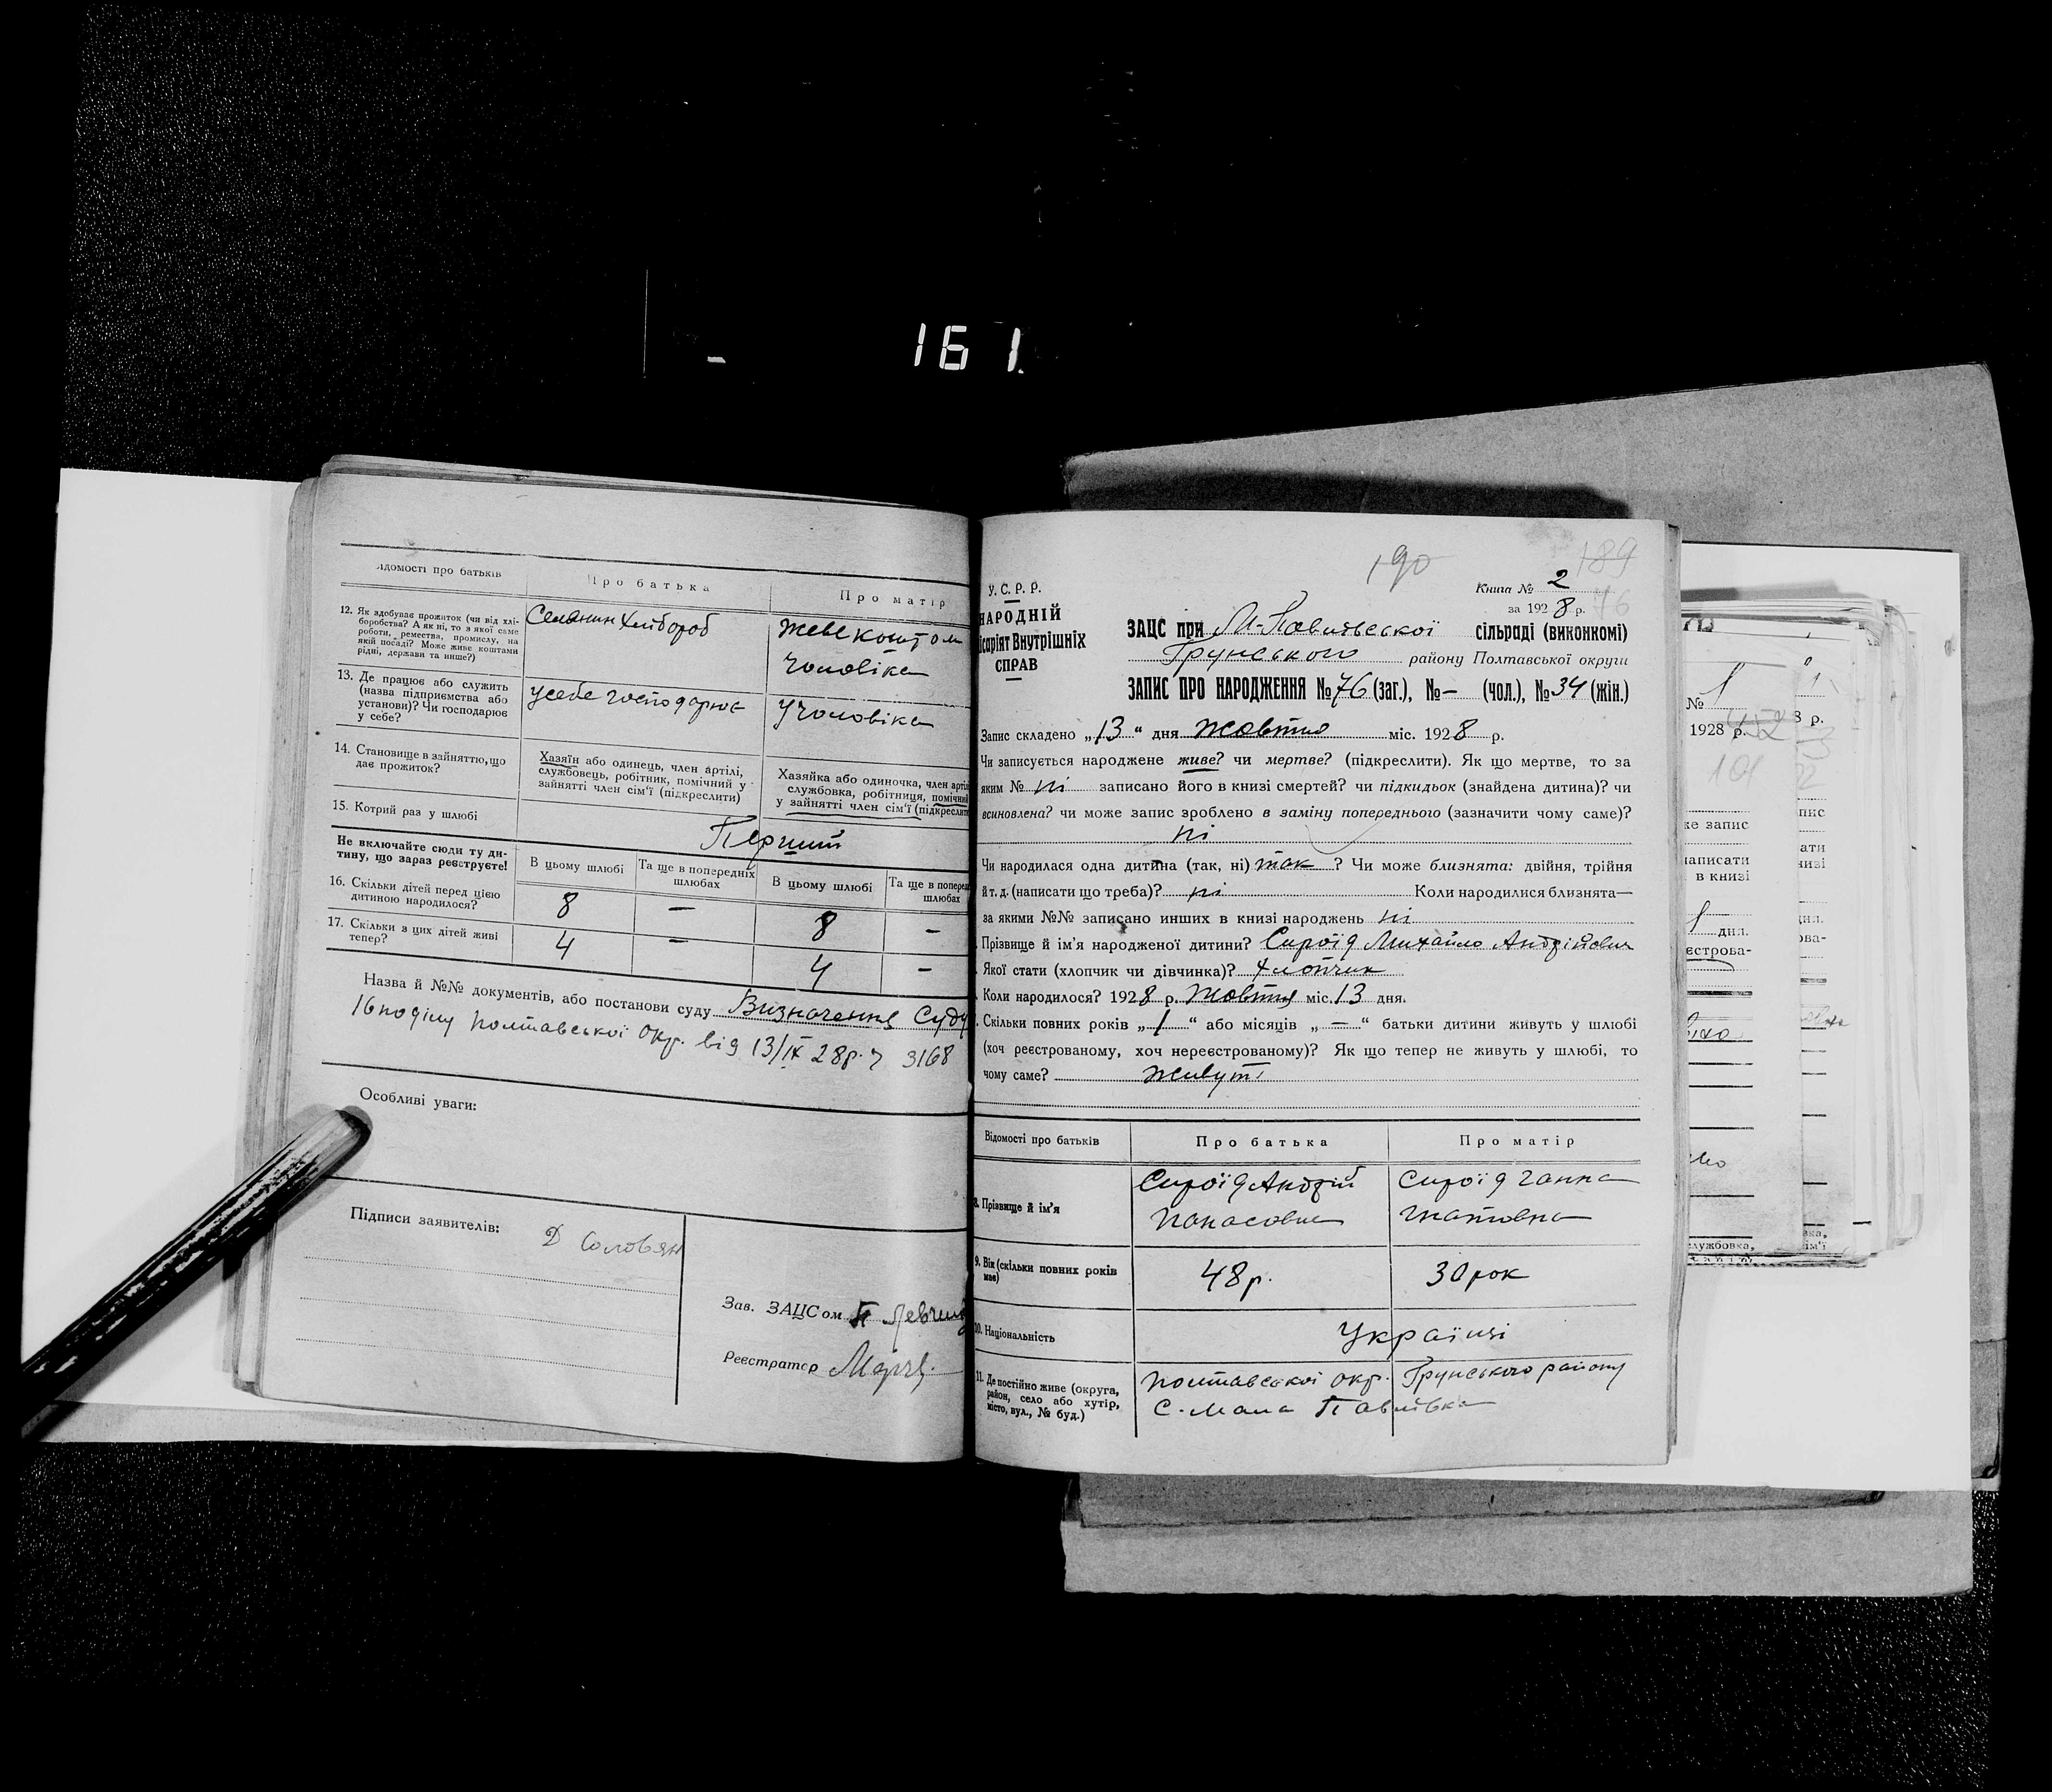 161
ідомості про батьків
Про батька
Про матір
12. Як здобуває прожиток (чи від хлі-
боробства? А як ні, то з якої саме
роботи, ремества, промислу, на
якій посаді? Може живе коштами
рідні, держави та инше?)
Селянин Хлібороб
Живе коштом
чоловіка
13. Де працює або служить
(назва підприємства або
установи)? Чи господарює
у себе?
У себе господарює
У чоловіка
14. Становище в зайняттю, що
дає прожиток?
Хазяїн або одинець, член артілі,
службовець, робітник, помічний у
зайнятті член сім'ї (підкреслити)
Хазяйка або одиночка, член артіл
службовка, робітниця, помічний
у зайнятті член сім'ї (підкреслити
15. Котрий раз у шлюбі
Перший
Не включайте сюди ту ди-
тину, що зараз реєструєте!
В цьому шлюбі
Та ще в попередніх
шлюбах
В цьому шлюбі
Та ще в поперед
шлюбах
16. Скільки дітей перед цією
дитиною народилося?
8 — 8 —
17. Скільки з цих дітей живі
тепер?
4 — 4 —
Назва й №№ документів, або постанови суду Визначення Суду
16 поділу Полтавської Окр. від 13/ІХ 28р. 3168
Особливі уваги:
Підписи заявителів:
Д Солов'ян
Зав. ЗАЦСом П
Реєстратор
190
189
У. С. Р. Р.
НАРОДНІЙ
ісаріят Внутрішніх
СПРАВ
Книга № 2
за 1928 р. 76
ЗАЦС при М-Павлівської сільраді (виконкомі)
Грунського району Полтавської округи
ЗАПИС ПРО НАРОДЖЕННЯ №76 (заг.), №— (чол.), №34 (жін.)
Запис складено „13“ дня Жовтня міс. 1928 р.
Чи записується народжене живе? чи мертве? (підкреслити). Як що мертве, то за
яким № ні записано його в книзі смертей? чи підкидьок (знайдена дитина)? чи
всиновлена? чи може запис зроблено в заміну попереднього (зазначити чому саме)?
ні
Чи народилася одна дитина (так, ні) так ? Чи може близнята: двійня, трійня
й т. д. (написати що треба)? ні Коли народилися близнята—
за якими №№ записано инших в книзі народжень ні
Прізвище й ім'я народженої дитини? Сироїд Михайло Андрійович
Якої стати (хлопчик чи дівчинка)? хлопчик
Коли народилося? 1928 р. Жовтня міс. 13 дня.
Скільки повних років „1“ або місяців „—“ батьки дитини живуть у шлюбі
(хоч реєстрованому, хоч нереєстрованому)? Як що тепер не живуть у шлюбі, то
чому саме? Живуть
Відомості про батьків
Про батька
Про матір
8. Прізвище й ім'я
Сироїд Андрій
Панасович
Сироїд Ганна
Гнатовна
9. Вік (скільки повних років
має)
48 р.
30 рок
10. Національність
Українці
11. Де постійно живе (округа,
район, село або хутір,
місто, вул., № буд.)
Полтавської окр. Грунського району
С. Мала Павлівка
№ 1
1928 р.
8 р.
же запис
написати
в книзі
1 дня.
естрова-
службовка,